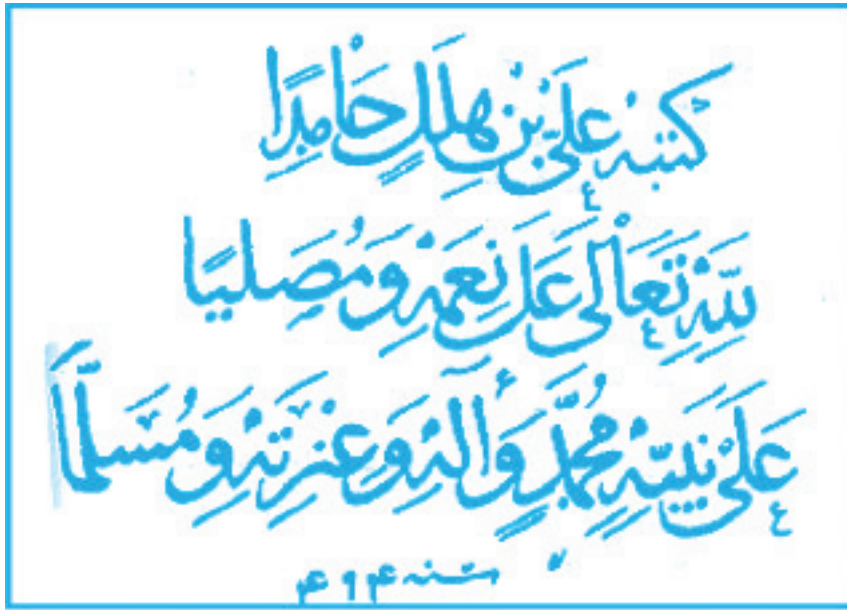 كَتَبَهُ عَلَيّ بْن هِلَلٍ حَامِدًا
لِلّٰهِ تَعَالَى عَلَى نِعَمِهِ وَمُصَلِيًا
عَلَى نَبِيِّهِ مُحَمَّدٍ وَآلِهِ وَعِتْرَتِهِ وَمُسَلِّمًا
سنه ۴۹۴